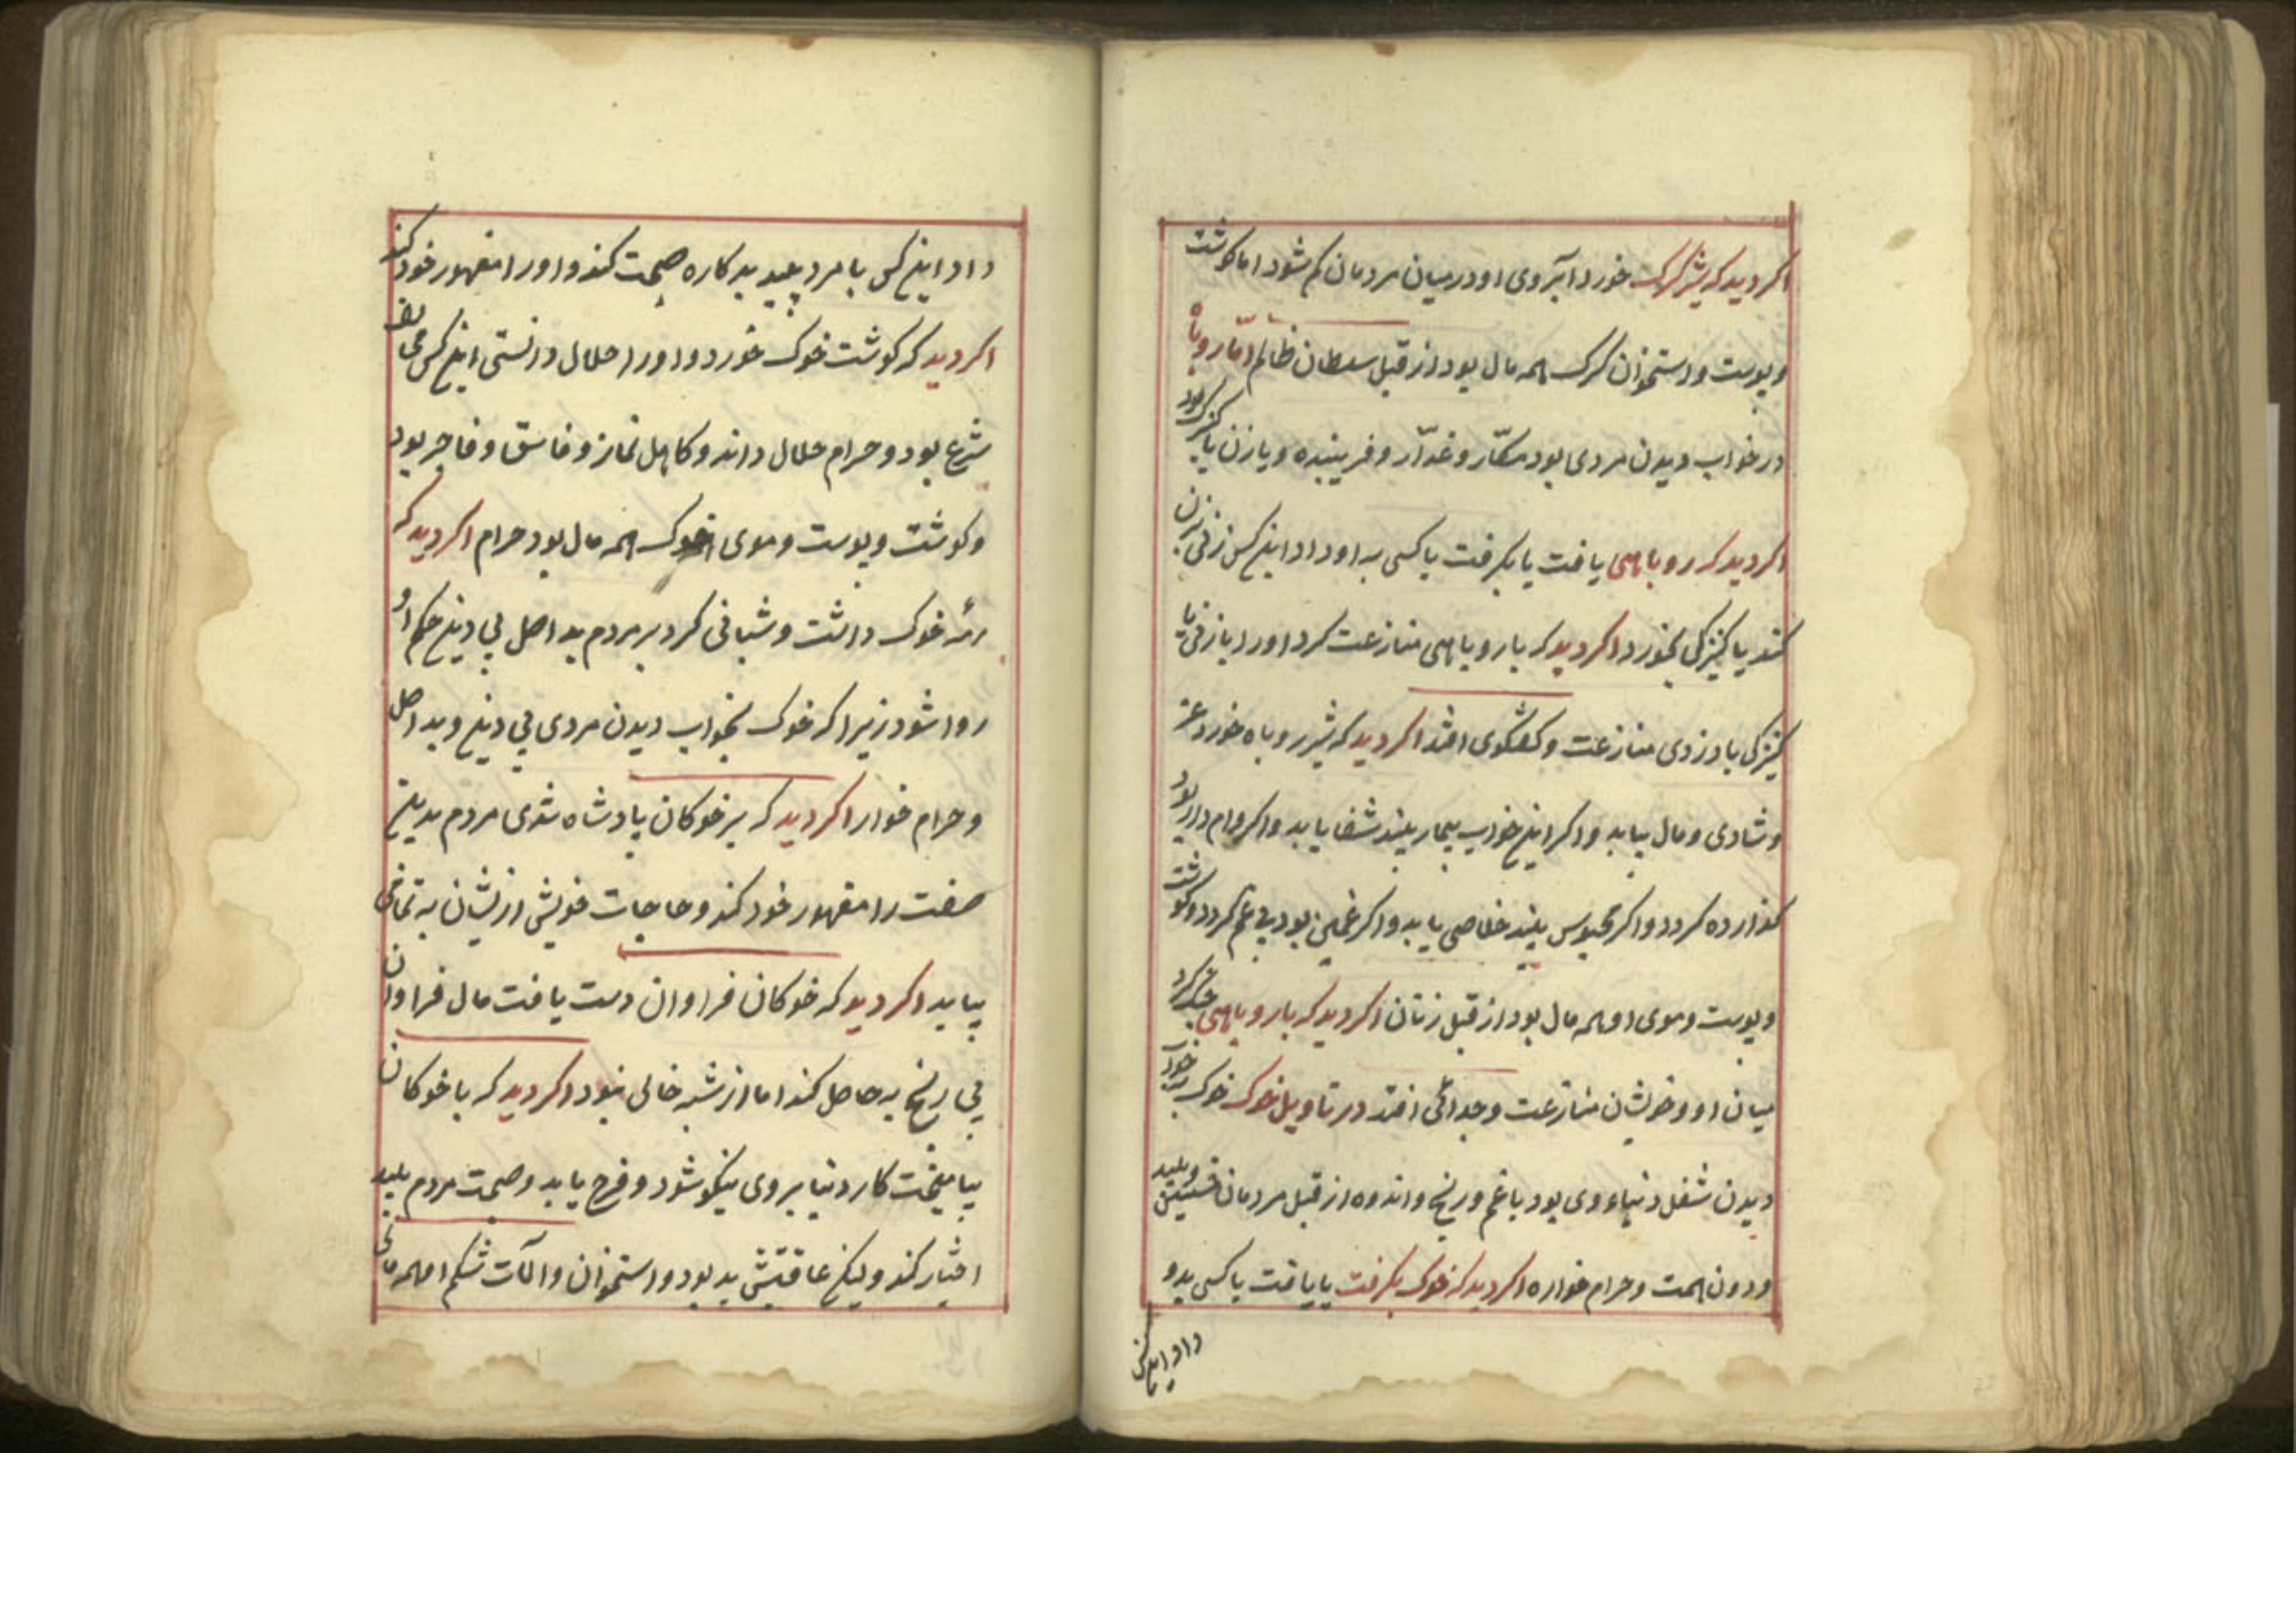 اکر دید که شیر کرک خورد آبروی او درمیان مردمان کم شود اما کوشت
و پوست و استخوان کرک همه مال بود از قبل سلطان ظالم امّا روباه
در خواب دیدن مردی بود مکّار و غدّار و فریبنده و یا زن یا کنیزک بود
اکر دید که روباهی یافت یا بکرفت یا کسی به او داد این کس زنی بزن
کند یا کنیزکی بخورد اکر دید که با روباهی منازعت کرد او را با زنی یا
کنیزکی یا دزدی منازعت و کفتکوی افتد اکر دید که شیر روباه خورد عز
و شادی و مال بیابد و اکر این خواب بیمار بیند شفا یابد و اکر وام دار بود
کذارده کردد و اکر محبوس بیند خلاصی یابد و اکر غمکین بود بی غم کردد و کوشت
و پوست و موی او همه مال بود از قبل زنان اکر دید که با روباهی جنک کرد
میان او و خویشان منازعت و جدائی افتد در تاویل خوک خوک بخواب
دیدن شغل دنیاء وی بود با غم و رنج و اندوه از قبل مردمان خسیس و پلید
و دون همت و حرام خواره اکر دید که خوک بکرفت یا یافت یا کسی بدو
داد این کس
داد این کس با مرد پلید بدکاره صحبت کند و او را مقهور خود کند
اکر دید که کوشت خوک خورد و او را حلال دانستی این کس مخالف
شرع بود و حرام حلال داند و کاهل نماز و فاسق و فاجر بود
و کوشت و پوست و موی خوک همه مال بود حرام اکر دید که
رمه خوک داشت و شبانی کرد بر مردم بد اصل بی دین حکم او
روا شود زیرا که خوک بخواب دیدن مردی بی دین و بد اصل
و حرام خوار اکر دید که بر خوکان پادشاه شدی مردم بدین
صفت را مقهور خود کند و حاجات خویش ازیشان به تمامی
بیابد اکر دید که خوکان فراوان دست یافت مال فراوان
بی رنج به حاصل کند اما از شبه خالی نبود اکر دید که با خوکان
بیامیخت کار دنیا بر وی نیکو شود و فرح یابد و صحبت مردم پلید
اختیار کند ولیکن عاقبتش بد بود و استخوان و آلات شکم او همه مالی